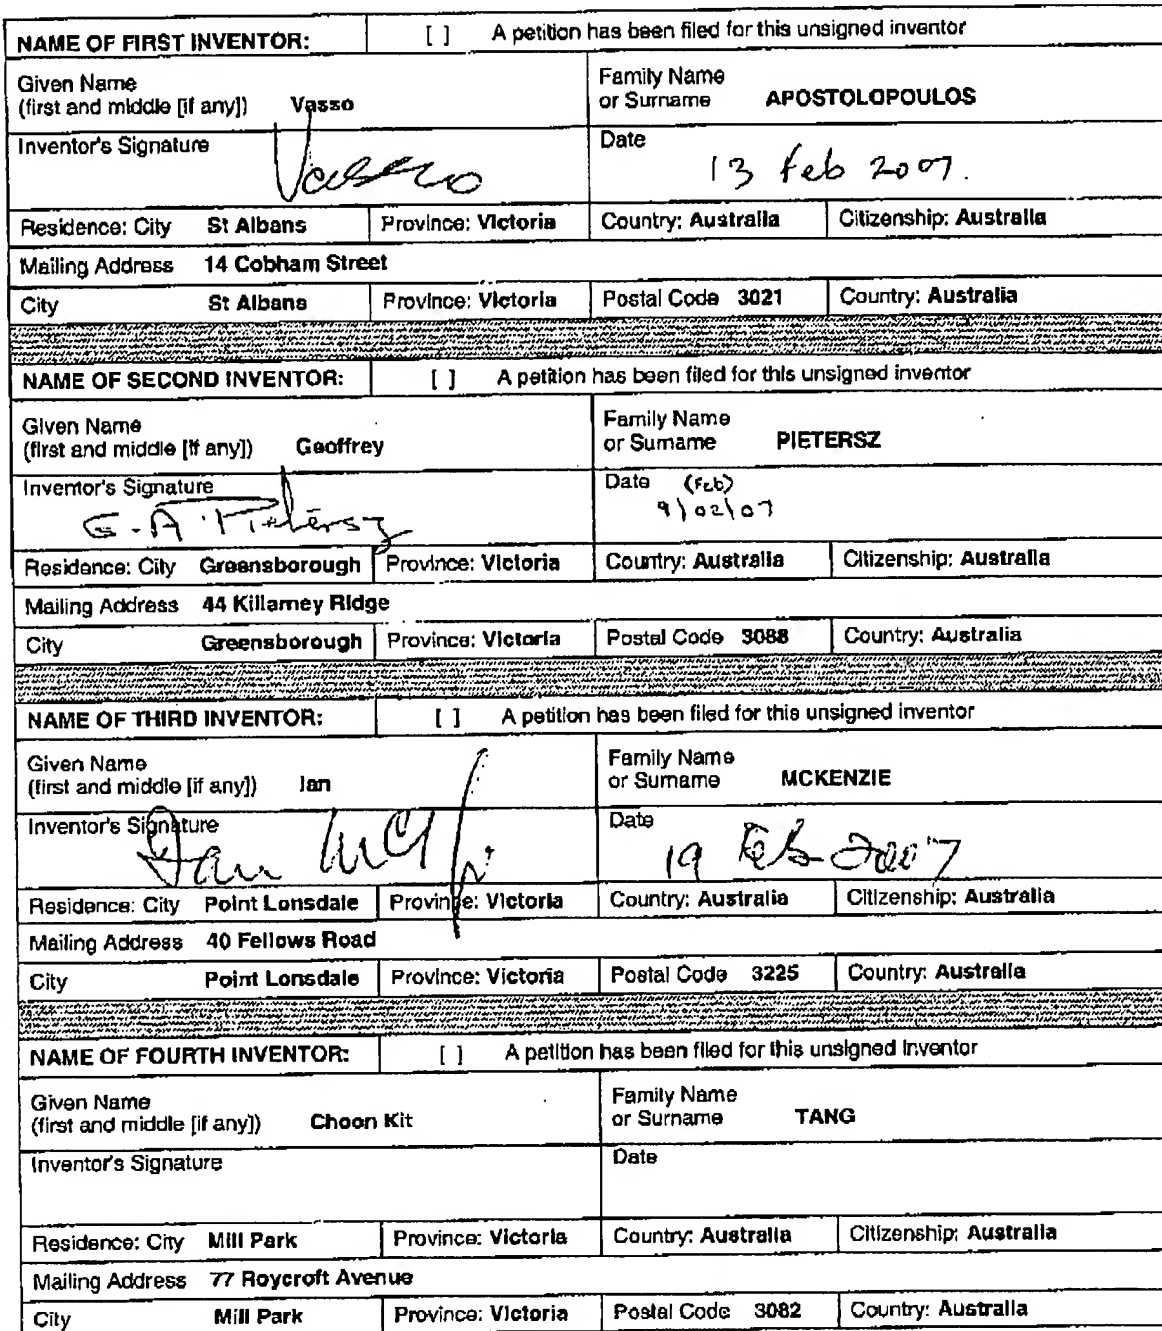 NAME OF FIRST INVENTOR: [ ] A petition has been filed for this unsigned inventor
Given Name Family Name
(first and middle [if any]) Vasso or Surname APOSTOLOPOULOS
Inventor's Signature Date
Vasso 13 Feb 2007.
Residence: City St Albans Province: Victoria Country: Australia Citizenship: Australia
Mailing Address 14 Cobham Street
City St Albans Province: Victoria Postal Code 3021 Country: Australia
NAME OF SECOND INVENTOR: [ ] A petition has been filed for this unsigned inventor
Given Name Family Name
(first and middle [if any]) Geoffrey or Surname PIETERSZ
Inventor's Signature Date (Feb)
G.A. Pietersz 9/02/07
Residence: City Greensborough Province: Victoria Country: Australia Citizenship: Australia
Mailing Address 44 Killarney Ridge
City Greensborough Province: Victoria Postal Code 3088 Country: Australia
NAME OF THIRD INVENTOR: [ ] A petition has been filed for this unsigned inventor
Given Name Family Name
(first and middle [if any]) Ian or Surname MCKENZIE
Inventor's Signature Date
Ian 19 Feb 2007
Residence: City Point Lonsdale Province: Victoria Country: Australia Citizenship: Australia
Mailing Address 40 Fellows Road
City Point Lonsdale Province: Victoria Postal Code 3225 Country: Australia
NAME OF FOURTH INVENTOR: [ ] A petition has been filed for this unsigned inventor
Given Name Family Name
(first and middle [if any]) Choon Kit or Surname TANG
Inventor's Signature Date
Residence: City Mill Park Province: Victoria Country: Australia Citizenship: Australia
Mailing Address 77 Roycroft Avenue
City Mill Park Province: Victoria Postal Code 3082 Country: Australia